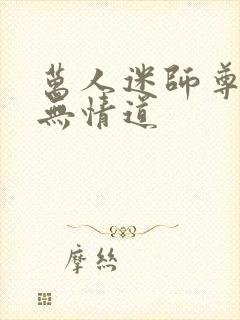 萬人迷師尊
無情道
摩絲